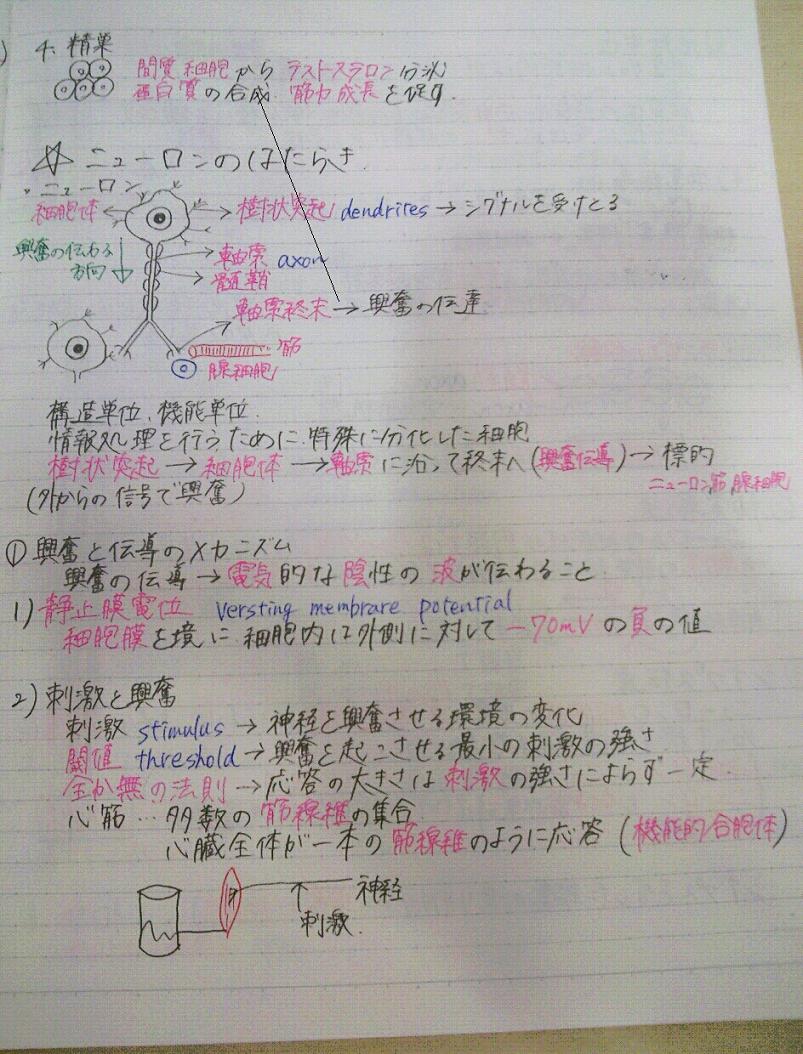 4. 精巣
間質細胞から テストステロン分泌
蛋白質の合成. 筋力成長を促す.
☆ ニューロンのはたらき.
・ニューロン
細胞体
樹状突起 dendrites → シグナルを受けとる
興奮の伝わる
方向
軸索 axon
髄鞘
軸索終末 → 興奮の伝達
筋
腺細胞
構造単位、機能単位.
情報処理を行うために.特殊に分化した細胞
樹状突起 → 細胞体 → 軸索に沿って終末へ (興奮伝導) → 標的
ニューロン,筋,腺細胞
(外からの信号で興奮)
① 興奮と伝導のメカニズム
興奮の伝導 → 電気的な陰性の波が伝わること.
1) 静止膜電位 versting membrare potential
細胞膜を境に.細胞内は外側に対して -70mV の負の値
2) 刺激と興奮
刺激 stimulus → 神経を興奮させる環境の変化
閾値 threshold → 興奮を起こさせる最小の刺激の強さ
全か無の法則 → 応答の大きさは刺激の強さによらず一定.
心筋 … 多数の筋線維の集合.
心臓全体が一本の筋線維のように応答 (機能的合胞体)
神経
刺激.